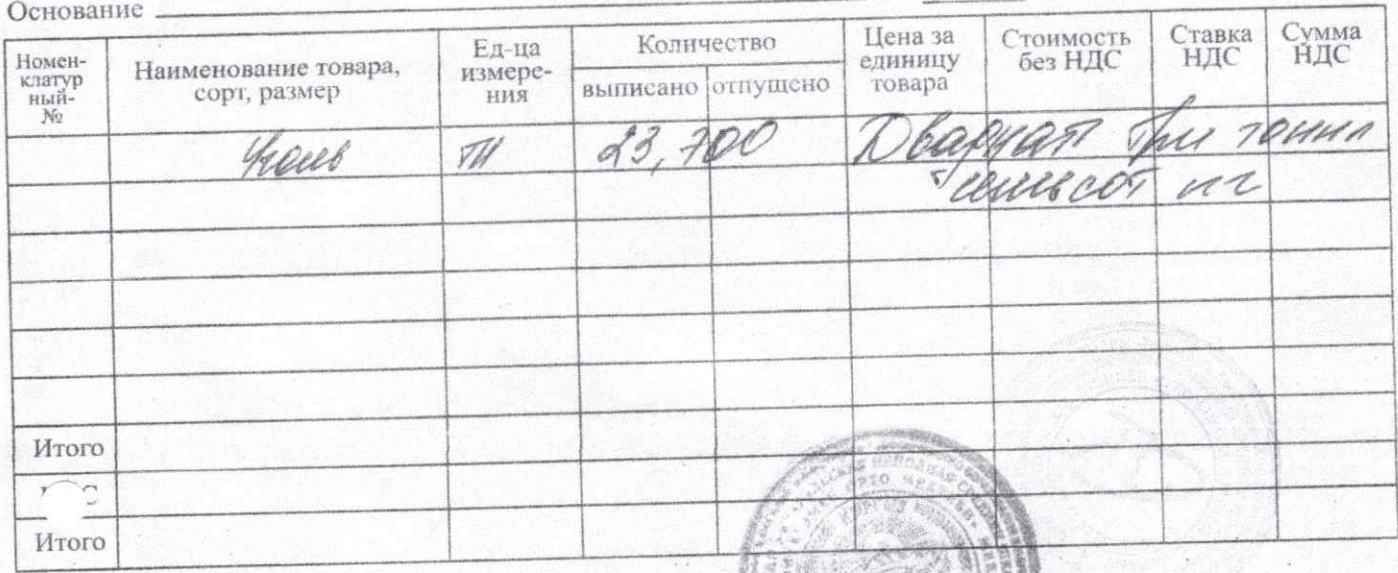 Основание
Номен-
клатур
ный-
№
Наименование товара,
сорт, размер
Ед-ца
измере-
ния
Количество
выписано отпущено
Цена за
единицу
товара
Стоимость
без НДС
Ставка
НДС
Сумма
НДС
Уголь тн 23,700 Двадцать три тонны
семьсот кг
Итого
Итого